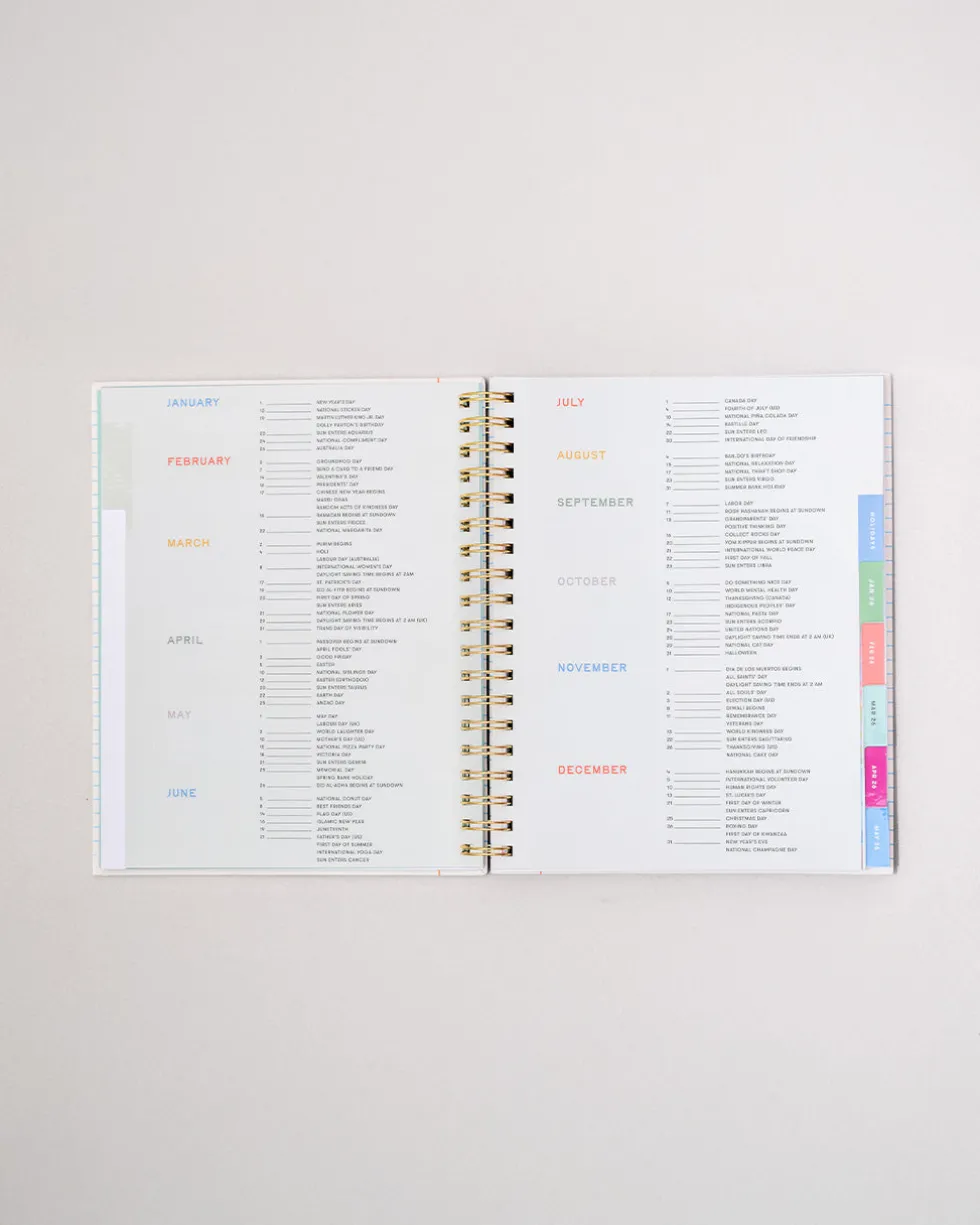 JANUARY
1 NEW YEAR'S DAY
NATIONAL SOCKS DAY
MARTIN LUTHER KING JR. DAY
DOLLY PARTON'S BIRTHDAY
SUN ENTERS AQUARIUS
NATIONAL COMPLIMENT DAY
AUSTRALIA DAY
FEBRUARY
2 GROUNDHOG DAY
SEND A CARD TO A FRIEND DAY
14 VALENTINE'S DAY
16 PRESIDENTS' DAY
17 CHINESE NEW YEAR BEGINS
MARDI GRAS
RANDOM ACTS OF KINDNESS DAY
RAMADAN BEGINS AT SUNDOWN
SUN ENTERS PISCES
22 NATIONAL MARGARITA DAY
MARCH
2 PURIM BEGINS
HOLI
LABOUR DAY (AUSTRALIA)
8 INTERNATIONAL WOMEN'S DAY
DAYLIGHT SAVING TIME BEGINS AT 2AM
17 ST. PATRICK'S DAY
EID AL-FITR BEGINS AT SUNDOWN
20 FIRST DAY OF SPRING
SUN ENTERS ARIES
NATIONAL FLOWER DAY
DAYLIGHT SAVING TIME BEGINS AT 2 AM (UK)
31 TRANS DAY OF VISIBILITY
APRIL
1 PASSOVER BEGINS AT SUNDOWN
APRIL FOOLS' DAY
3 GOOD FRIDAY
5 EASTER
10 NATIONAL SIBLINGS DAY
12 EASTER (ORTHODOX)
SUN ENTERS TAURUS
22 EARTH DAY
25 ANZAC DAY
MAY
1 MAY DAY
LABOUR DAY (UK)
3 WORLD LAUGHTER DAY
10 MOTHER'S DAY (US)
15 NATIONAL PIZZA PARTY DAY
18 VICTORIA DAY
21 SUN ENTERS GEMINI
25 MEMORIAL DAY
SPRING BANK HOLIDAY
26 EID AL-ADHA BEGINS AT SUNDOWN
JUNE
5 NATIONAL DONUT DAY
8 BEST FRIENDS DAY
14 FLAG DAY (US)
16 ISLAMIC NEW YEAR
19 JUNETEENTH
21 FATHER'S DAY (US)
FIRST DAY OF SUMMER
INTERNATIONAL YOGA DAY
SUN ENTERS CANCER
JULY
1 CANADA DAY
4 FOURTH OF JULY (US)
10 NATIONAL PIÑA COLADA DAY
14 BASTILLE DAY
22 SUN ENTERS LEO
30 INTERNATIONAL DAY OF FRIENDSHIP
AUGUST
4 BAN.DO'S BIRTHDAY
15 NATIONAL RELAXATION DAY
17 NATIONAL THRIFT SHOP DAY
23 SUN ENTERS VIRGO
31 SUMMER BANK HOLIDAY
SEPTEMBER
7 LABOR DAY
11 ROSH HASHANAH BEGINS AT SUNDOWN
13 GRANDPARENTS' DAY
POSITIVE THINKING DAY
COLLECT ROCKS DAY
20 YOM KIPPUR BEGINS AT SUNDOWN
21 INTERNATIONAL WORLD PEACE DAY
22 FIRST DAY OF FALL
SUN ENTERS LIBRA
OCTOBER
DO SOMETHING NICE DAY
10 WORLD MENTAL HEALTH DAY
12 THANKSGIVING (CANADA)
INDIGENOUS PEOPLES' DAY
17 NATIONAL PASTA DAY
SUN ENTERS SCORPIO
24 UNITED NATIONS DAY
25 DAYLIGHT SAVING TIME ENDS AT 2 AM (UK)
NATIONAL CAT DAY
31 HALLOWEEN
NOVEMBER
1 DIA DE LOS MUERTOS BEGINS
ALL SAINTS' DAY
DAYLIGHT SAVING TIME ENDS AT 2 AM
2 ALL SOULS' DAY
3 ELECTION DAY (US)
8 DIWALI BEGINS
11 REMEMBRANCE DAY
VETERANS DAY
13 WORLD KINDNESS DAY
SUN ENTERS SAGITTARIUS
26 THANKSGIVING (US)
NATIONAL CAKE DAY
DECEMBER
4 HANUKKAH BEGINS AT SUNDOWN
5 INTERNATIONAL VOLUNTEER DAY
10 HUMAN RIGHTS DAY
13 ST. LUCIA'S DAY
21 FIRST DAY OF WINTER
SUN ENTERS CAPRICORN
25 CHRISTMAS DAY
26 BOXING DAY
FIRST DAY OF KWANZAA
31 NEW YEAR'S EVE
NATIONAL CHAMPAGNE DAY
HOLIDAYS
JAN 26
FEB 26
MAR 26
APR 26
MAY 26